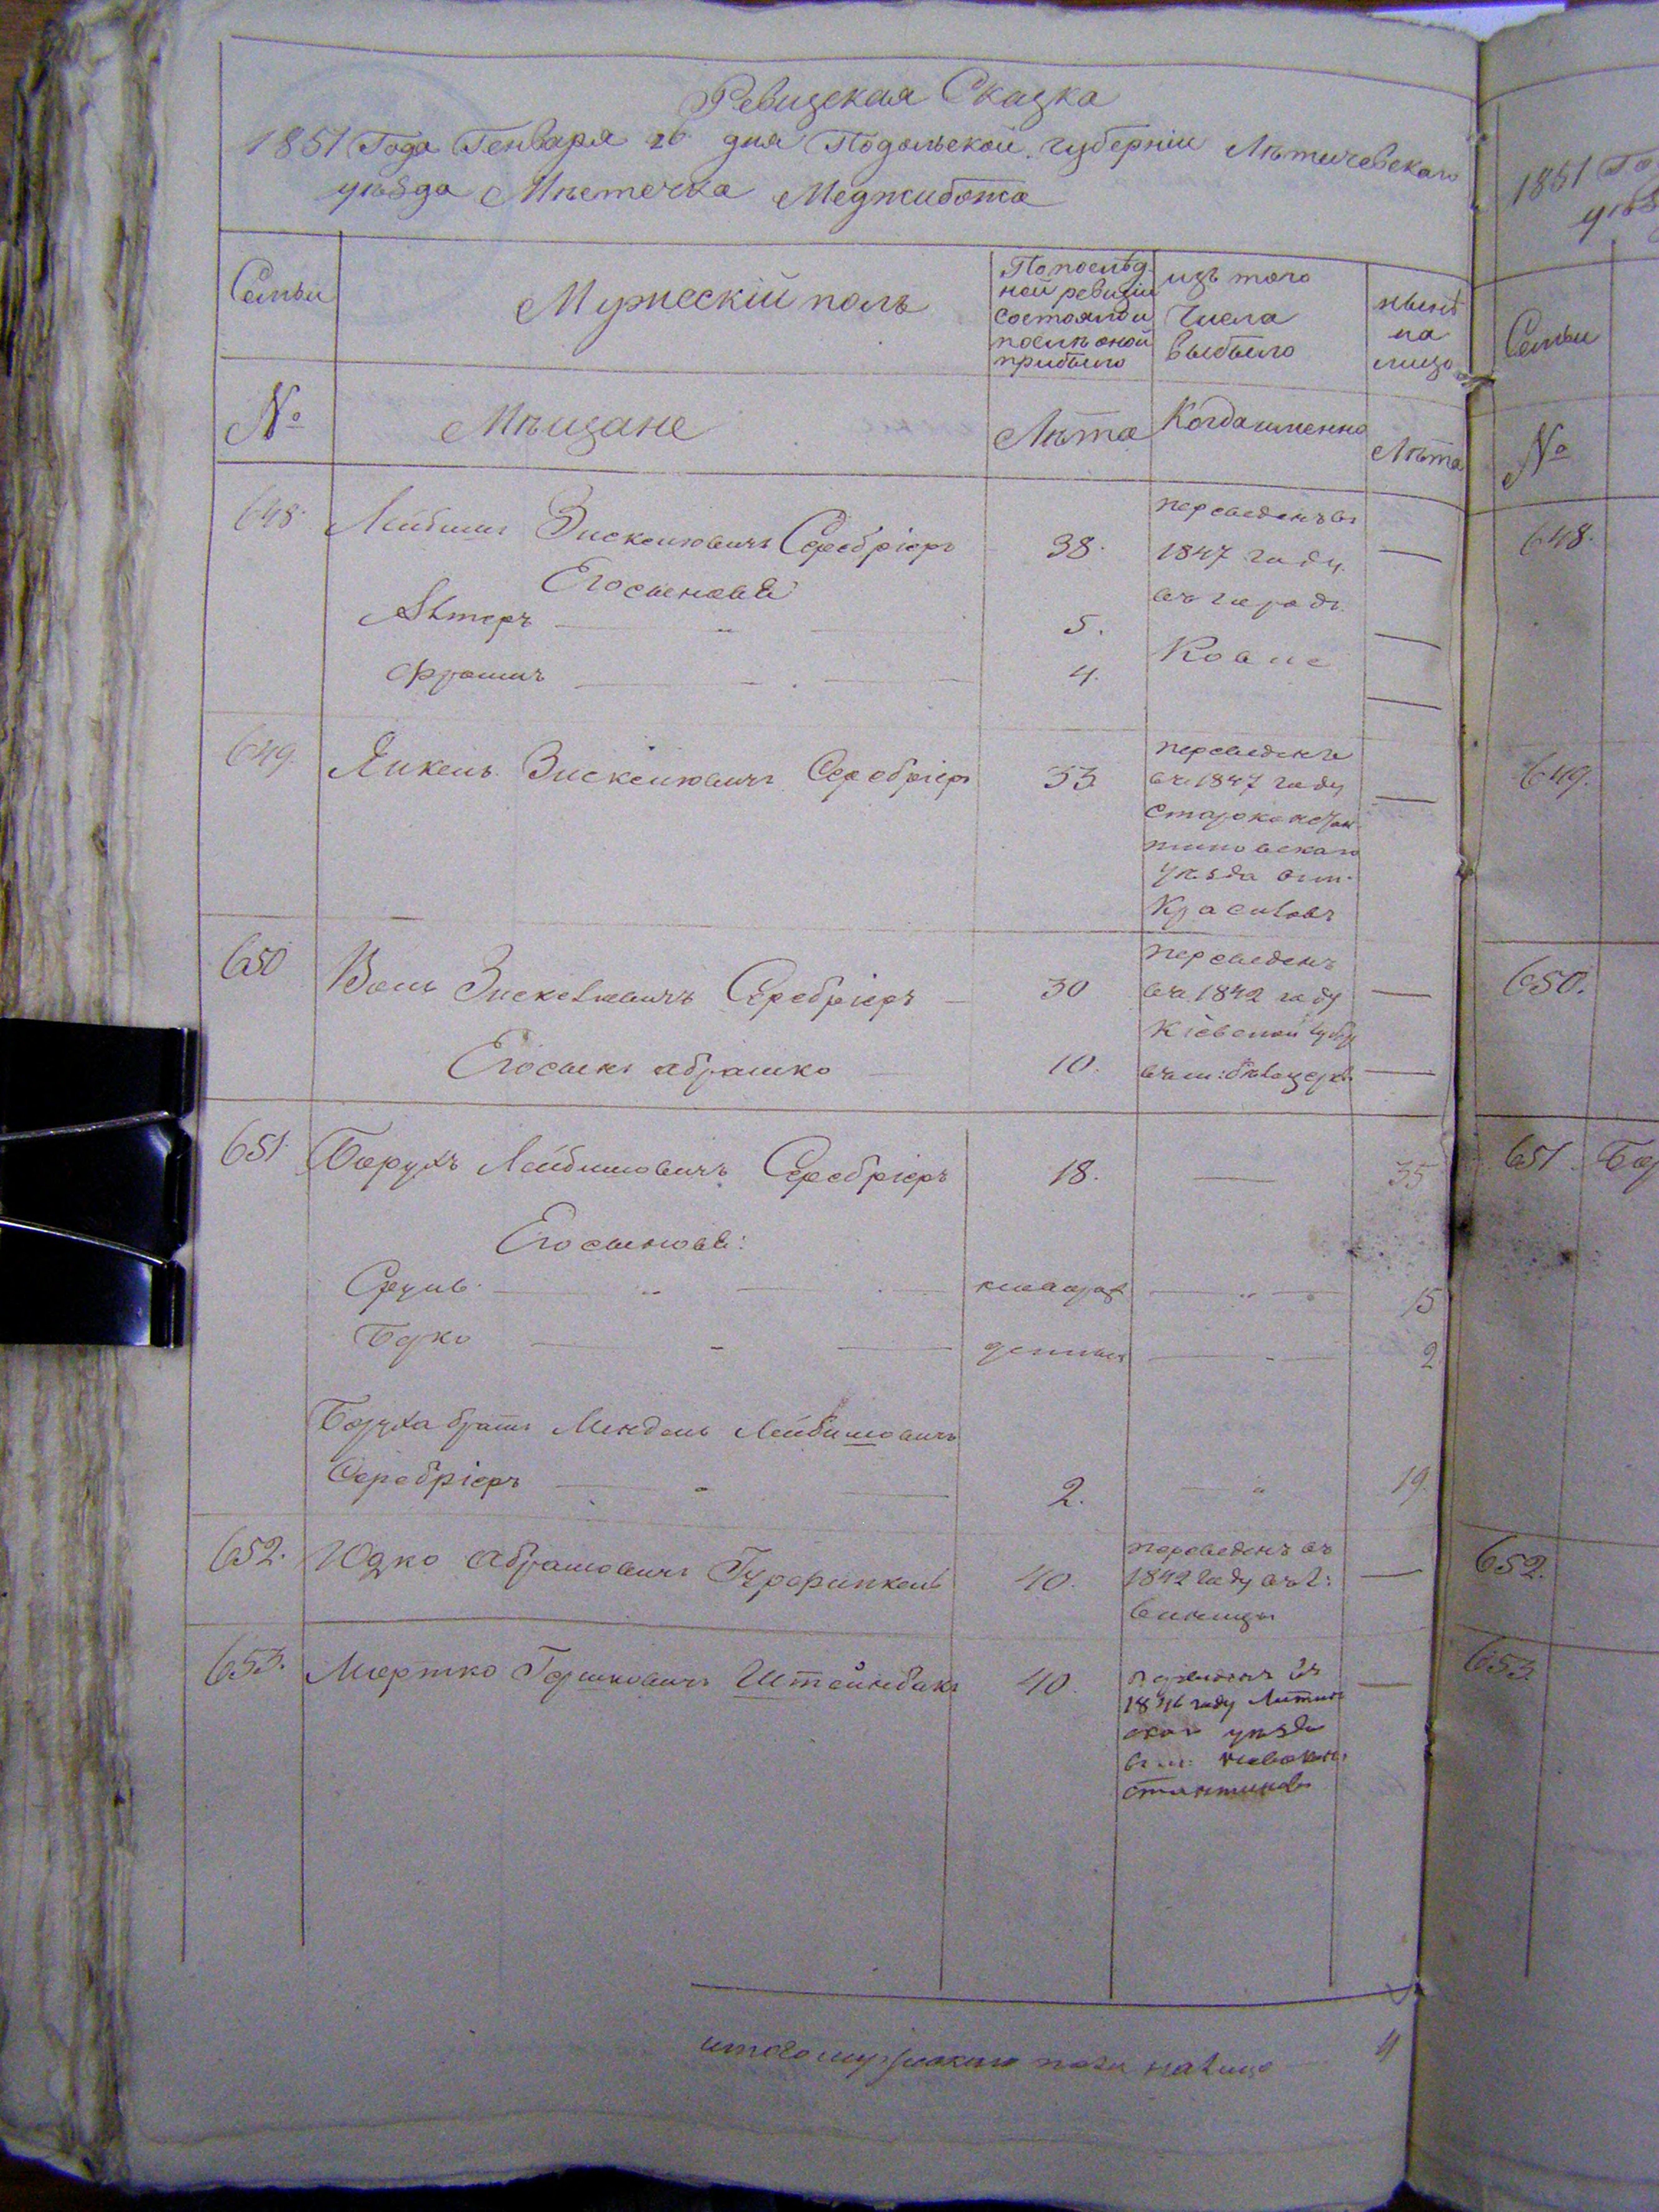 Ревизская Сказка
1851 Года Генваря 26 дня Подольской губерніи Лѣтичевскаго
уѣзда Мѣстечка Меджибожа
Семьи
Мужескій полъ
По послѣд
ней ревизіи
состояло и
послѣ оной
прибыло
изъ того
числа
выбыло
нынѣ
на
лицо
№
Мѣщане
Лѣта
Когда именно
Лѣта
648.
Лейбишъ Зискелювичъ Серебріеръ
38.
переведенъ въ
1847 году
въ городъ
Ковне
—
Его сыновья
Алтеръ
5.
—
Фроимъ
4.
—
649.
Янкель Зискелювичъ Серебріеръ
33
переведенъ
въ 1847 году
Староконстан
тиновскаго
уѣзда въ м.
Красиловъ
—
650
Волъ Зискелювичъ Серебріеръ
30
переведенъ
въ 1842 году
Кіевской губер
въ м: бѣлацерк
—
Его сынъ Абрашко
10.
—
651.
Борухъ Лейбишовичъ Серебріеръ
18.
—
35
Его сыновья:
Сруль
15
Берко
2
Боруха братъ Мендель Лейбишовичъ
Серебріеръ
2.
19.
652.
Юдко Абрамовичъ Гурфинкель
40.
переведенъ въ
1842 году въ г:
Виницы
—
653.
Мортко Гершковичъ Штейнбакъ
40.
переведенъ въ
1846 году Литин
скаго уѣзда
въ м: Новокон
стантиновъ
—
итого мужескаго пола налицо
4
1851 Го
уѣз
Семьи
№
648.
649.
650.
651 Бор
652.
653